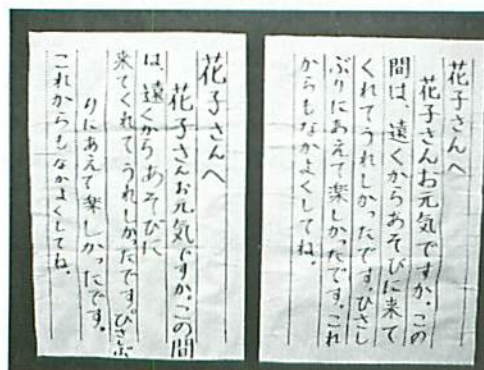 花子さんへ
花子さんお元気ですか。この
間は、遠くからあそびに来て
くれてうれしかったです。ひさし
ぶりにあえて楽しかったです。これ
からもなかよくしてね。
花子さんへ
花子さんお元気ですか。この間
は、遠くからあそびに
来てくれてうれしかったです。ひさしぶ
りにあえて楽しかったです。
これからもなかよくしてね。